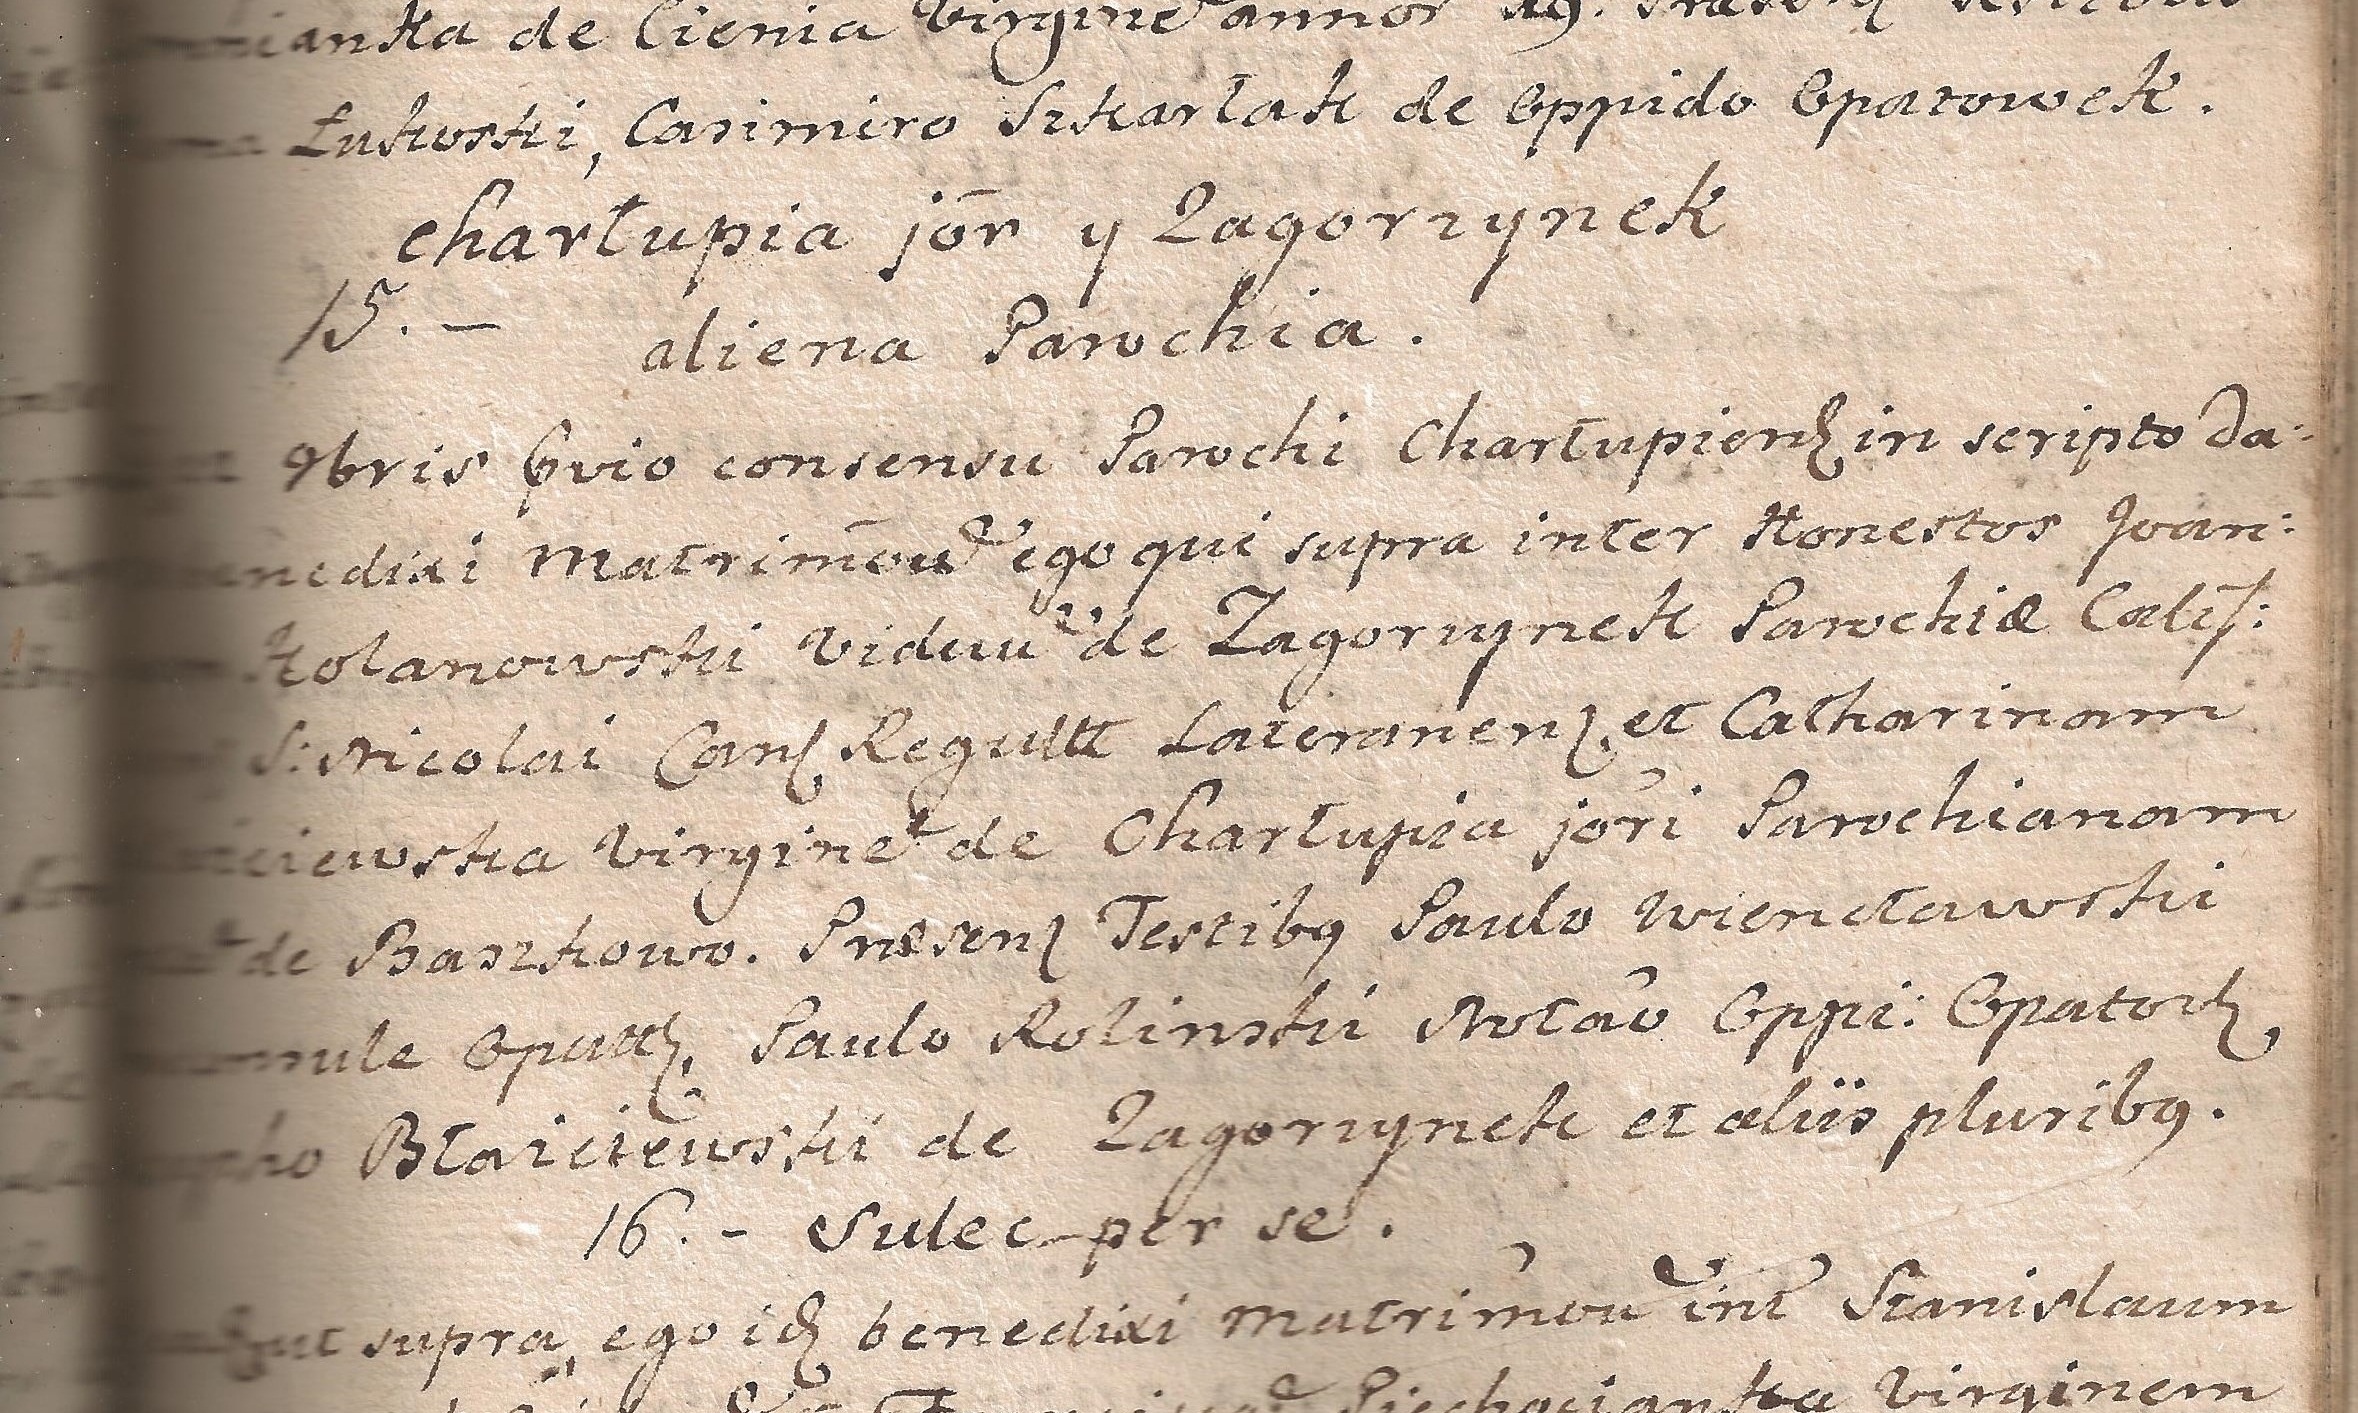 ianka de Cienia Virginē annor 19. Præsen testibus
Łukoski, Casimiro Szkarłak de Oppido Opatowek.
Chartupia jōr y Zagorzynek
15. —
aliena Parochia.
9bris pvio consensu Parochi Chartupien in scripto Da-
nedixi Matrimōū ego qui supra inter Honestos Joan:
Kolanowski Viduū de Zagorzynek Parochiæ Calis:
S: Nicolai Can Regull Lateranen et Catharinam
ciewska Virginē de Chartupia jōri Parochianam
de Baszkowo. Præsen Testibq Paulo Wienctawski
mule Opatt, Paulo Rolinski Notāo Oppi: Opator,
pho Błaiciewski de Zagorzynek et aliis pluribq.
16. - Sulec per se.
ut supra, ego id benedixi Matrimōū int Stanislaum
Piechocianka Virginem